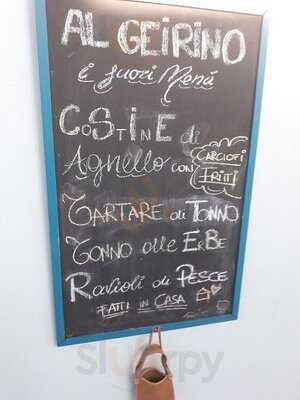 AL GEIRINO
i fuori Menù
CoSTiNE di
Agnello con
CARCIOFI
FRITTI
TARTARE di TONNO
TONNO alle ErBe
RAvioli di PESCE
FATTI IN CASA
Sluurpy